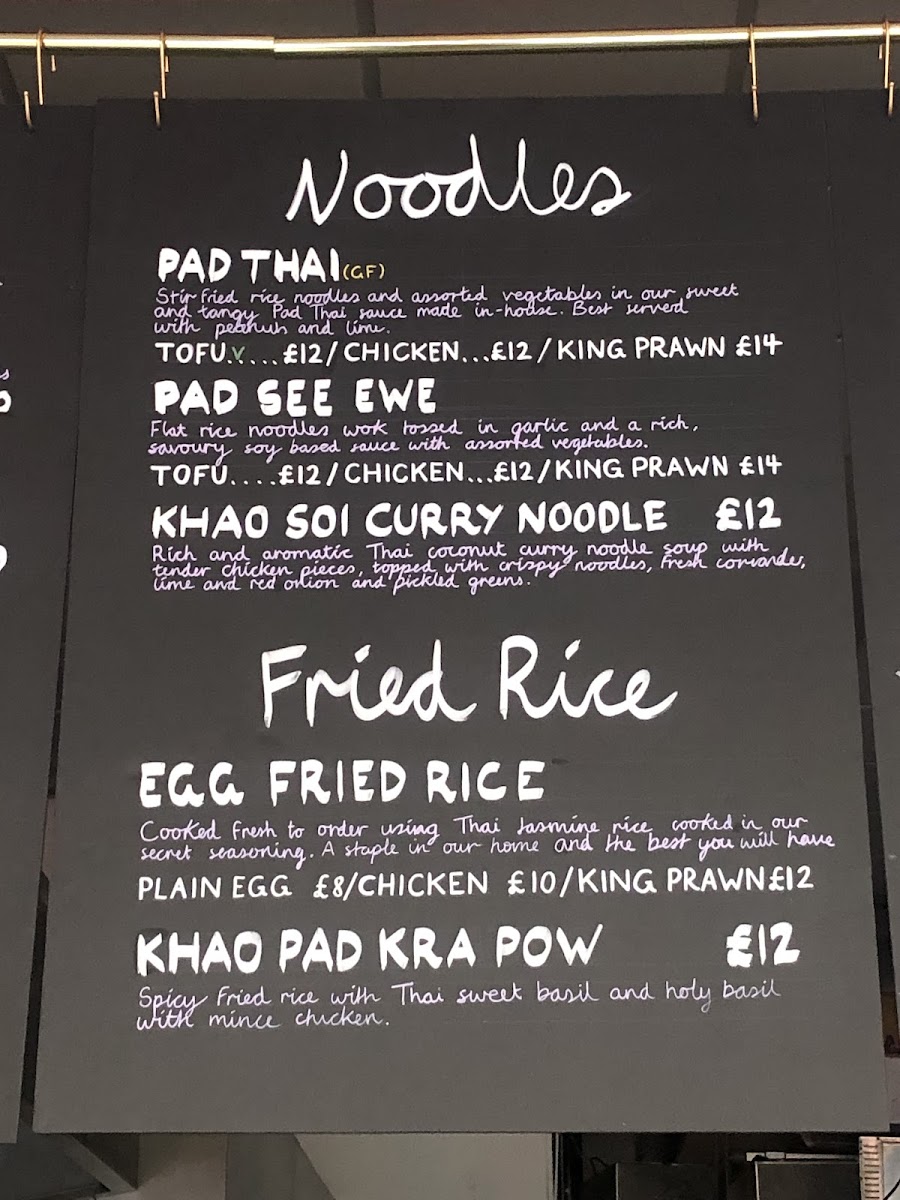 Noodles
PAD THAI (GF)
Stir fried rice noodles and assorted vegetables in our sweet
and tangy Pad Thai sauce made in-house. Best served
with peanuts and lime.
TOFU.V....£12/CHICKEN...£12/KING PRAWN £14
PAD SEE EWE
Flat rice noodles wok tossed in garlic and a rich,
savoury soy based sauce with assorted vegetables.
TOFU....£12/CHICKEN...£12/KING PRAWN £14
KHAO SOI CURRY NOODLE £12
Rich and aromatic Thai coconut curry noodle soup with
tender chicken pieces, topped with crispy noodles, fresh coriander,
lime and red onion and pickled greens.
Fried Rice
EGG FRIED RICE
Cooked fresh to order using Thai Jasmine rice cooked in our
secret seasoning. A staple in our home and the best you will have
PLAIN EGG £8/CHICKEN £10/KING PRAWN £12
KHAO PAD KRA POW £12
Spicy fried rice with Thai sweet basil and holy basil
with mince chicken.